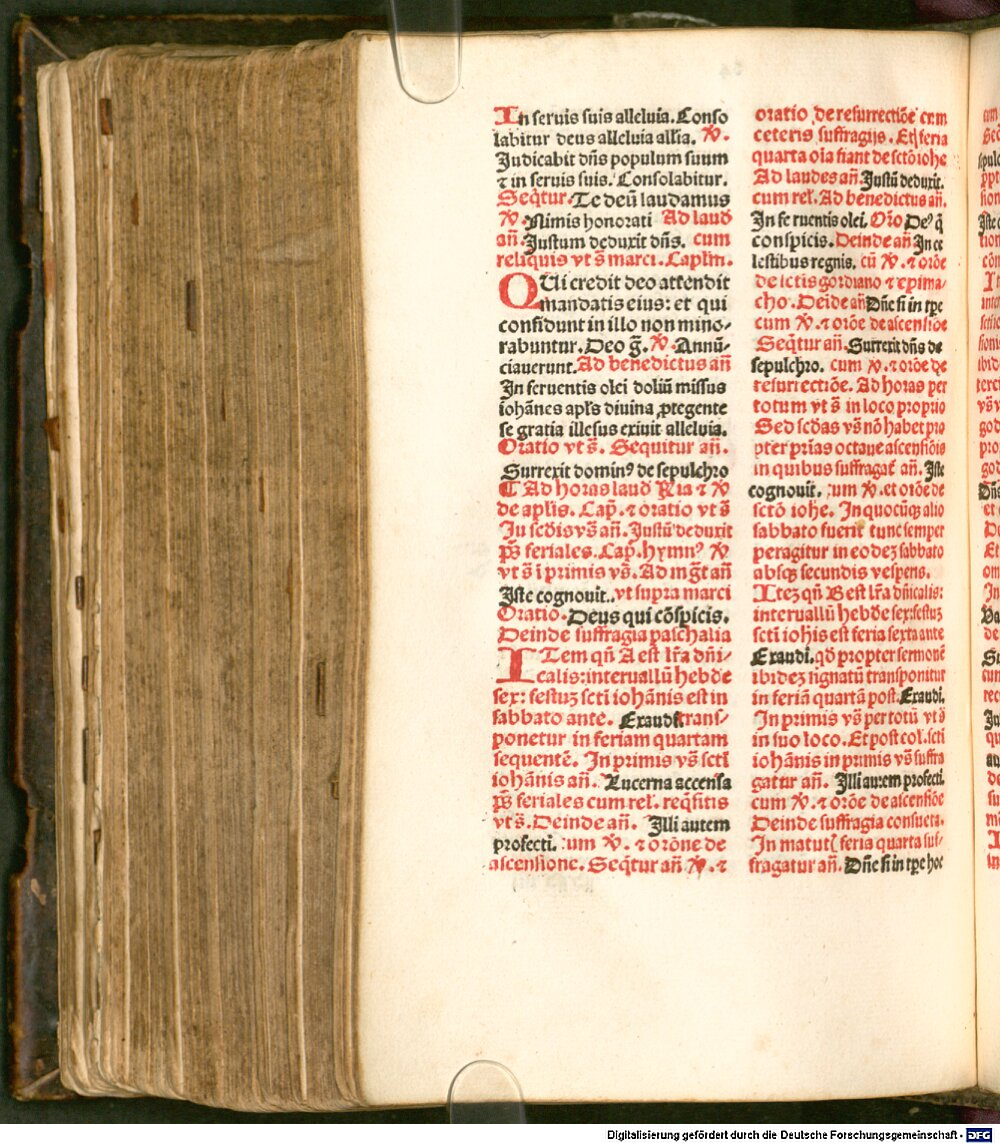 In seruis suis alleluia. Conso
labitur deus alleluia allĩa. ℣.
Judicabit dñs populum suum
⁊ in seruis suis. Consolabitur.
Seq̃tur. Te deũ laudamus
℣. Nimis honorati Ad laud
añ. Justum deduxit dñs. cum
reliquis vt s̃ marci. Caplm̃.
QUi credit deo attendit
mandatis eius: et qui
confidunt in illo non mino/
rabuntur. Deo g̃. ℣. Annũ/
ciauerunt. Ad benedictus añ
In feruentis olei doliũ missus
iohãnes apl̃s diuina ꝓtegente
se gratia illesus exiuit alleluia.
Oratio vt s̃. Sequitur añ.
Surrexit dominꝰ de sepulchro
Ad horas laud R̃ia ⁊ ℣
de apl̃is. Cap̃. ⁊ oratio vt s̃
In sc̃dis vs̃ añ. Justũ deduxit
ps̃ feriales. Cap̃. hymnꝰ ℣
vt s̃ ĩ primis vs̃. Ad mg̃t añ
Iste cognouit. vt supra marci
Oratio. Deus qui cõspicis.
Deinde suffragia paschalia
ITem qñ A est lr̃a dñi/
calis: interuallũ hebde
sex: festuʒ scti iohãnis est in
sabbato ante. Exaudi trans/
ponetur in feriam quartam
sequentẽ. In primis vs̃ scti
iohãnis añ. Lucerna accensa
ps̃ feriales cum rel̃. req̃sitis
vt s̃. Deinde añ. Illi autem
profecti. cum ℣. ⁊ orõne de
ascensione. Seq̃tur añ ℣. ⁊
oratio de resurrectiõe cum
ceteris suffragijs. Et feria
quarta oĩa fiant de sctõ iohe
Ad laudes añ. Justũ deduxit.
cum rel̃. Ad benedictus añ.
In feruentis olei. Or̃o Deꝰ q̃
conspicis. Deinde añ In ce
lestibus regnis. cũ ℣. ⁊ orõe
de ictis gordiano ⁊ epima/
cho. Deĩde añ Dñe si in tꝑe
cum ℣. ⁊ orõe de ascensiõe
Seq̃tur añ. Surrexit dñs de
sepulchro. cum ℣. ⁊ orõe de
resurrectiõe. Ad horas per
totum vt s̃ in loco proprio
Sed sc̃das vs̃ nõ habet pro
pter prĩas octaue ascensiõis
in quibus suffragat̃ añ. Iste
cognouit. cum ℣. et orõe de
sctõ iohe. In quocũqʒ alio
sabbato fuerit tunc semper
peragitur in eodeʒ sabbato
absqʒ secundis vesperis.
Iteʒ qñ B est lr̃a dñicalis:
interuallũ hebde sex: festuʒ
scti iohis est feria sexta ante
Exaudi. qd̃ propter sermonẽ
ibideʒ signatũ transponitur
in feriã quartã post. Exaudi.
In primis vs̃ per totũ vt s̃
in suo loco. Et post col. scti
iohãnis in primis vs̃ suffra
gatur añ. Illi autem profecti.
cum ℣. ⁊ orõe de ascensiõe
Deinde suffragia consueta.
In matut̃ feria quarta suf/
fragatur añ. Dñe si in tꝑe hoc
Digitalisierung gefördert durch die Deutsche Forschungsgemeinschaft - DFG